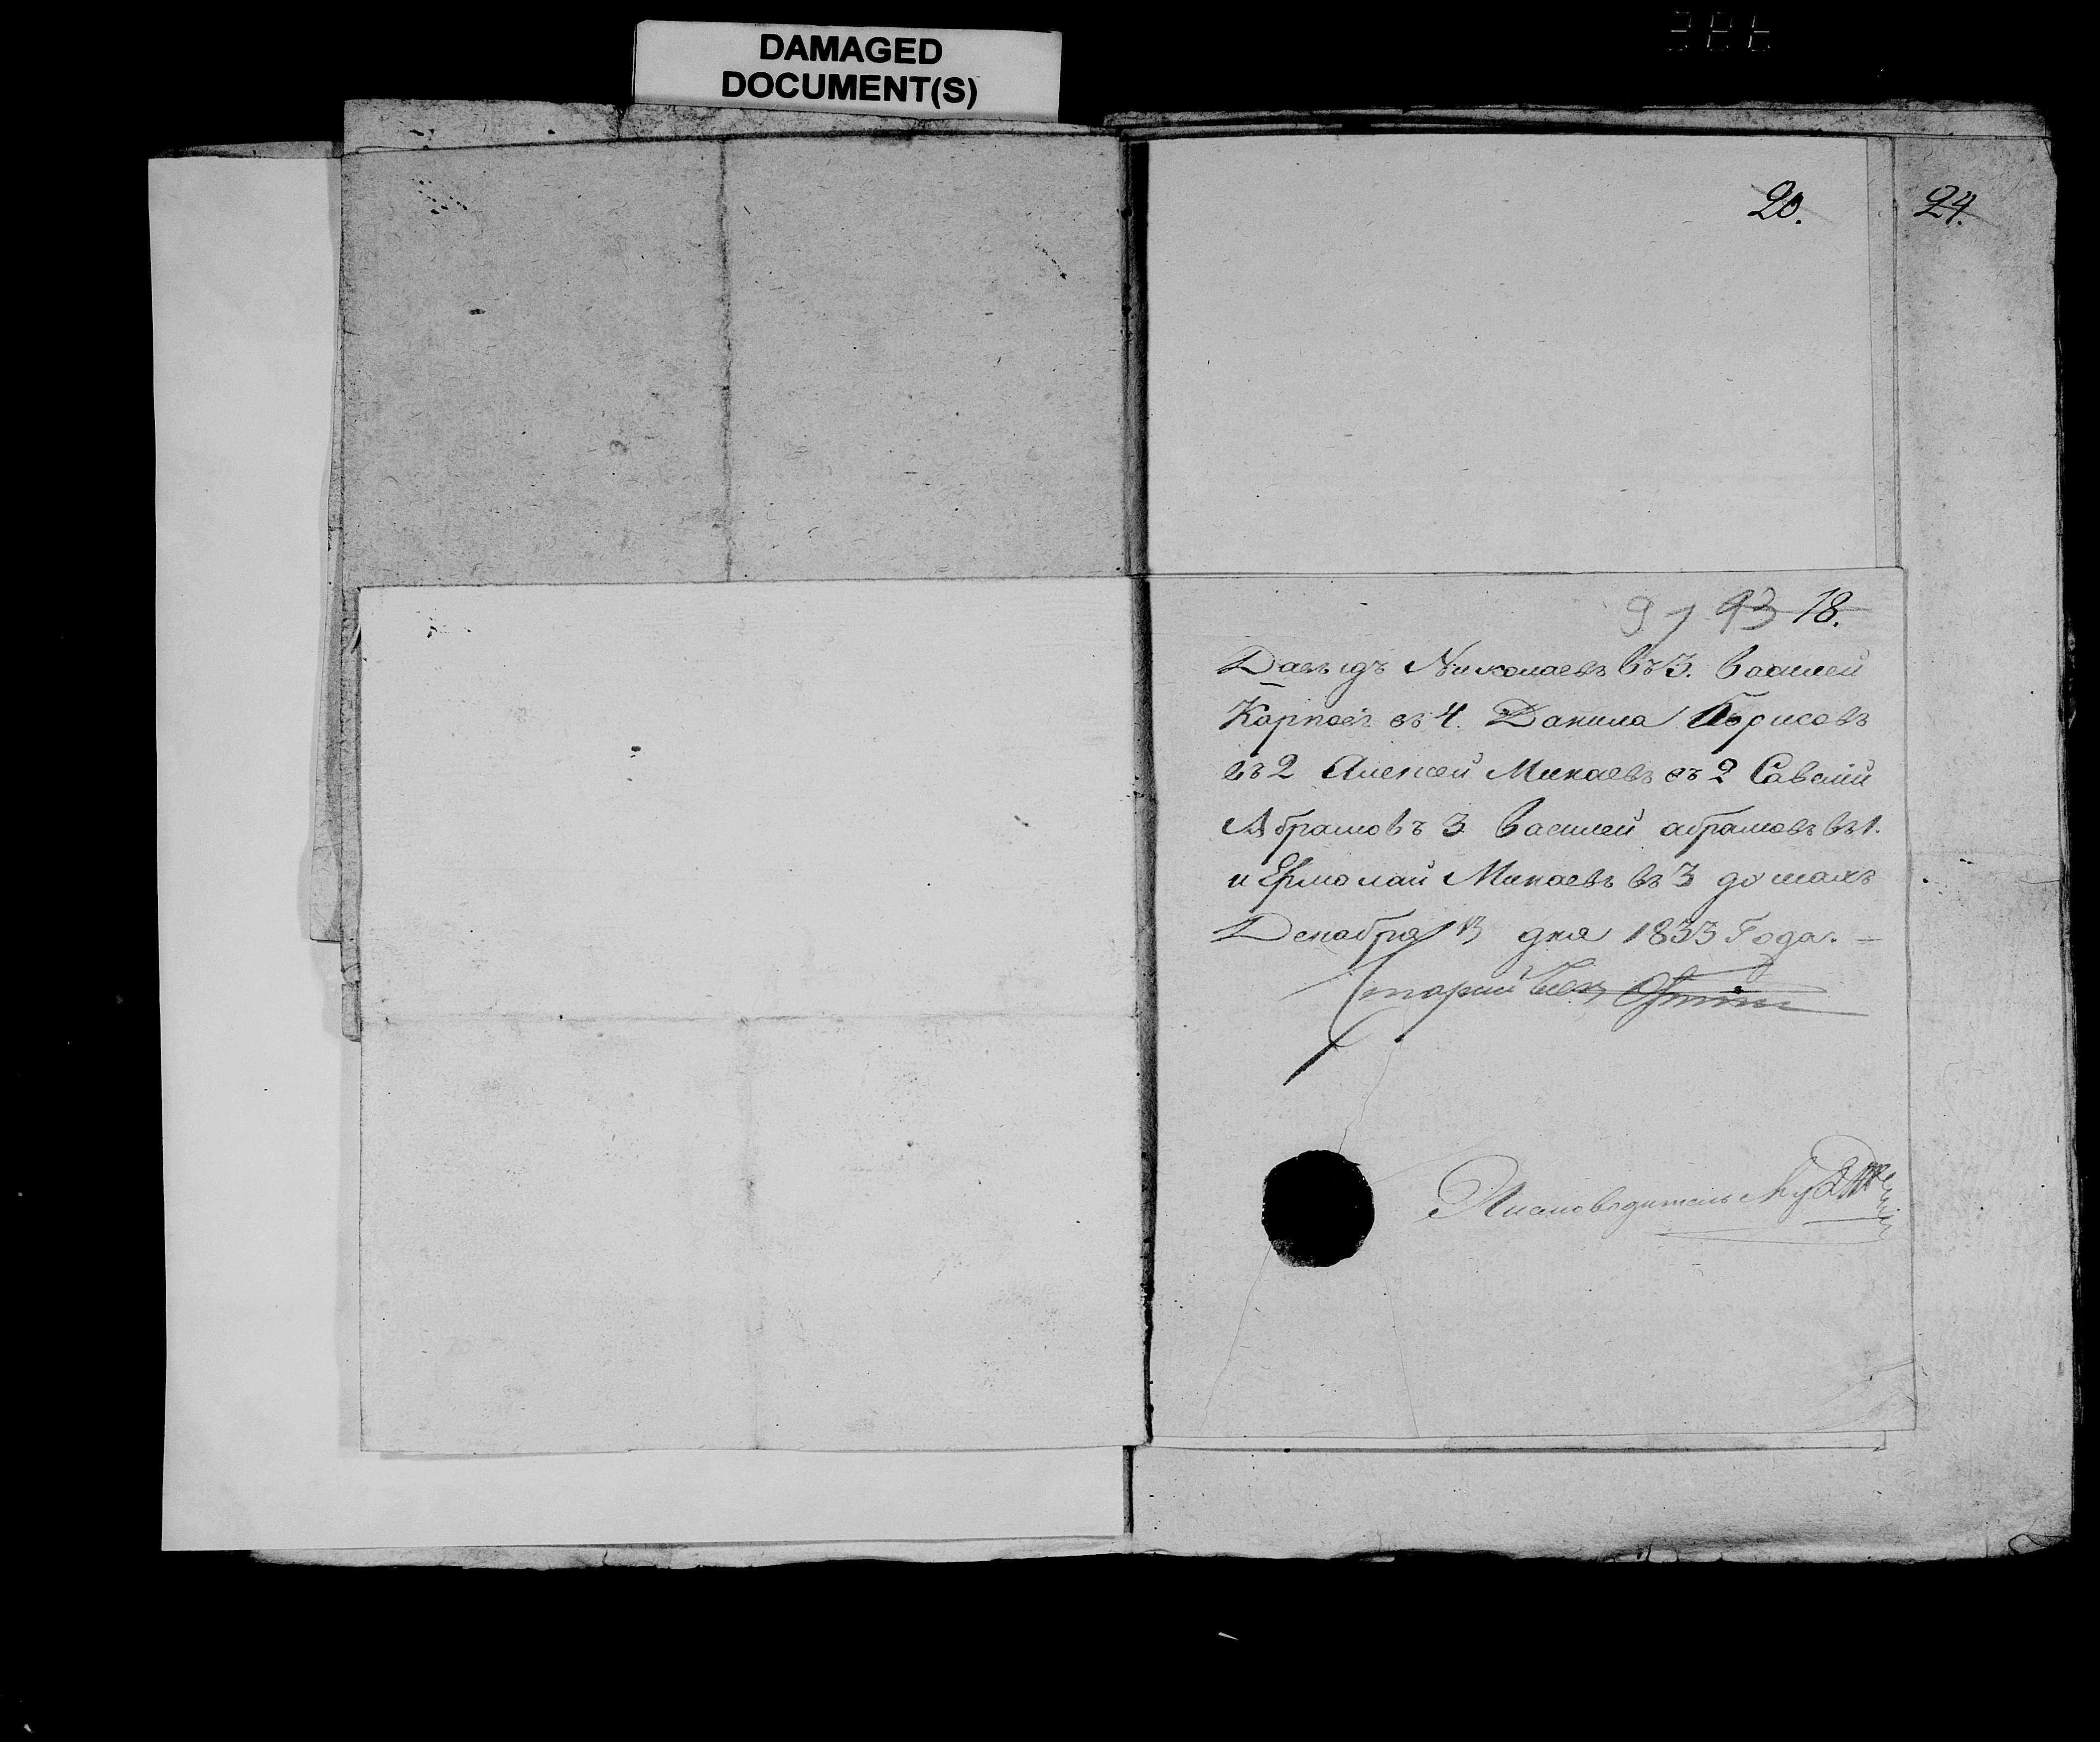 DAMAGED
DOCUMENT(S)
20.
24.
91 93 18.
Давыдъ Николаевъ въ 3. Василей
Карповъ въ 4. Данила Борисовъ
въ 2 Алексей Минаевъ въ 2 Савелий
Абрамовъ 3 Василей абрамовъ въ 1.
и Ермолай Минаевъ въ 3 домахъ
Декабря 13 дня 1833 Года. –
Письмоводитель